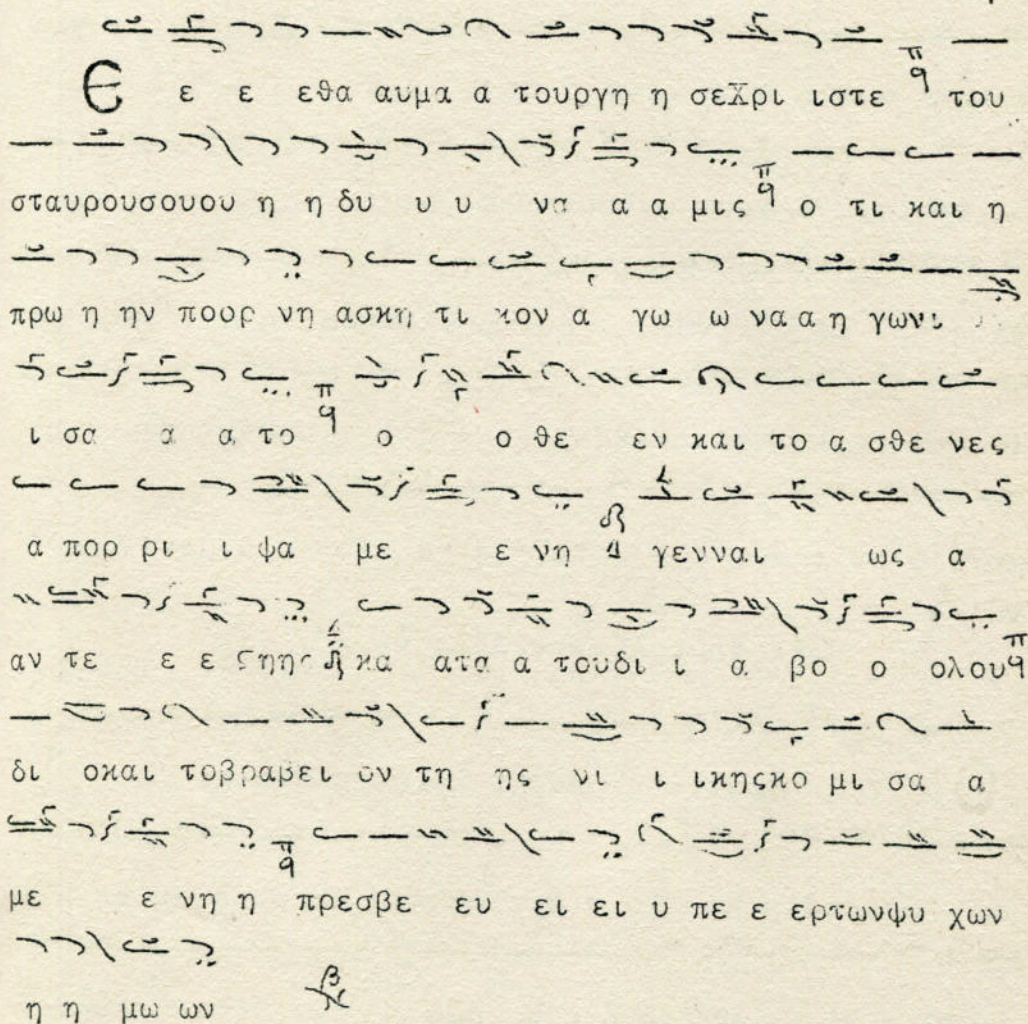 Ε ε ε εθα αυμα α τουργη η σεΧρι ιστε π̅q του
σταυρουσουου η η δυ υ υ να α α μις π̅q ο τι και η
πρω η ην ποορ νη ασκη τι κον α γω ω ναα η γωνι
ι σα α α το π̅q ο ο θε εν και το α σθε νες
α πορ ρι ι ψα με ε νη Δ γενναι ως α
αν τε ε ε ζηης Δ κα ατα α τουδι ι α βο ο ολου π̅q
δι οκαι τοβραβει ον τη ης νι ι ικηςκο μι σα α
με ε νη η π̅q πρεσβε ευ ει ει υ πε ε ερτωνψυ χων
η η μω ων